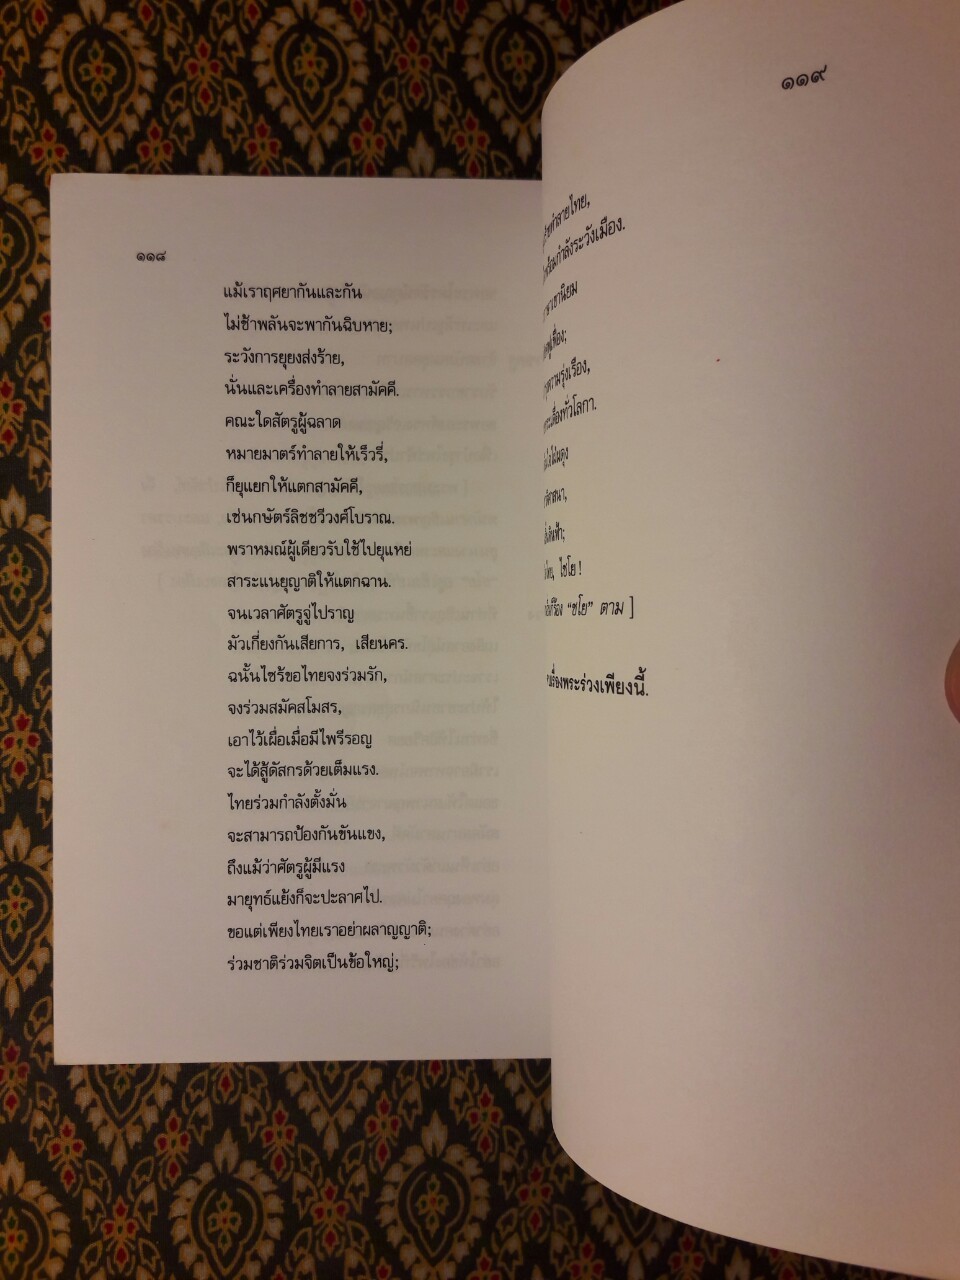 ๑๑๘
แม้เราฤศยากันและกัน
ไม่ช้าพลันจะพากันฉิบหาย;
ระวังการยุยงส่งร้าย,
นั่นและเครื่องทำลายสามัคคี.
คณะใดสัตรูผู้ฉลาด
หมายมาตร์ทำลายให้เร็วรี่,
ก็ยุแยกให้แตกสามัคคี,
เช่นกษัตร์ลิชชวีวงศ์โบราณ.
พราหมณ์ผู้เดียวรับใช้ไปยุแหย่
สาระแนยุญาติให้แตกฉาน.
จนเวลาศัตรูจู่ไปราญ
มัวเกี่ยงกันเสียการ, เสียนคร.
ฉนั้นไซร้ขอไทยจงร่วมรัก,
จงร่วมสมัคสโมสร,
เอาไว้เผื่อเมื่อมีไพรีรอญ
จะได้สู้ดัสกรด้วยเต็มแรง.
ไทยร่วมกำลังตั้งมั่น
จะสามารถป้องกันขันแขง,
ถึงแม้ว่าศัตรูผู้มีแรง
มายุทธ์แย้งก็จะปะลาศไป.
ขอแต่เพียงไทยเราอย่าผลาญญาติ;
ร่วมชาติร่วมจิตเป็นข้อใหญ่;
๑๑๙
ทำลายไทย,
กำลังระวังเมือง.
นิยม
ความรุ่งเรือง,
เลื่องทั่วโลกา.
ผดุง
ศาสนา,
ดินฟ้า;
ไทย, ไชโย !
"ชโย" ตาม ]
เรื่องพระร่วงเพียงนี้.